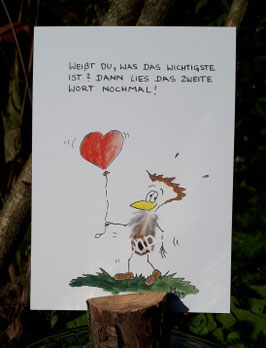 WEIßT DU, WAS DAS WICHTIGSTE
IST? DANN LIES DAS ZWEITE
WORT NOCHMAL!